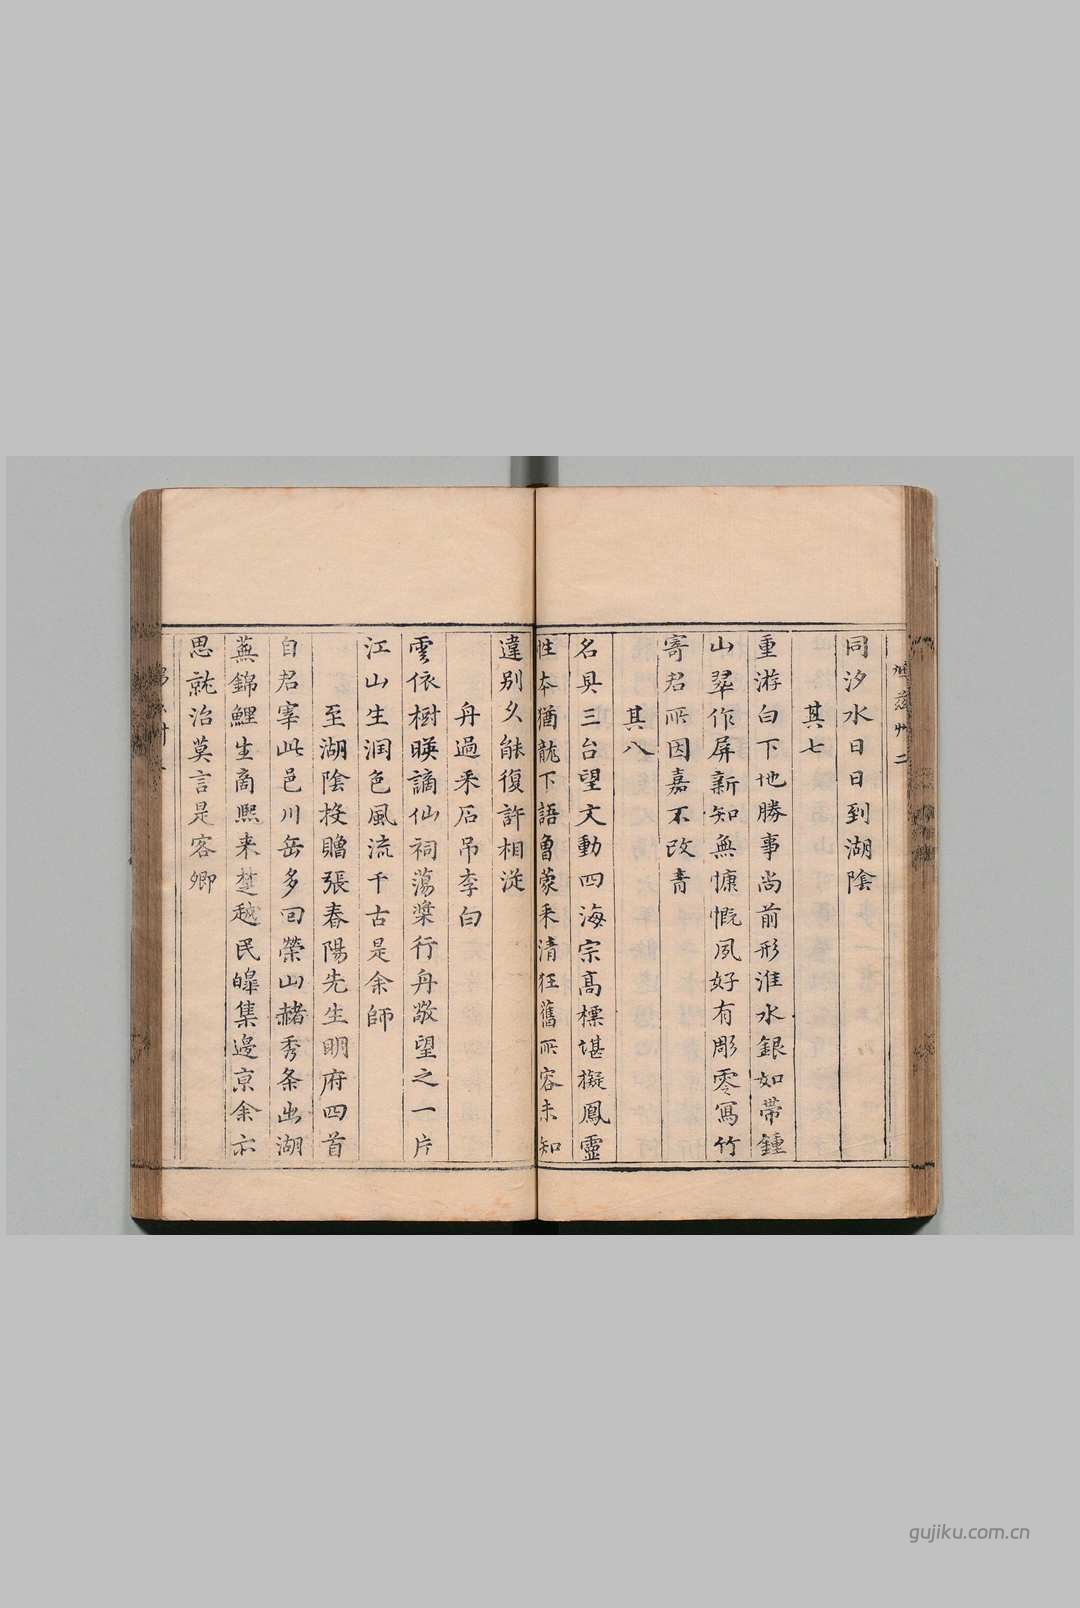 同汐水日日到湖陰
其七
重游白下地勝事尚前形淮水銀如帶鍾
山翠作屏新知無慷慨夙好有彫零寫竹
寄君所因嘉不改青
其八
名具三台望文動四海宗高標堪擬鳳靈
性本猶龍下語魯蒙来清狂舊所容未知
違别久能復許相從
舟過采石吊李白
雲依樹暎謫仙祠蕩槳行舟敬望之一片
江山生润色風流千古是余師
至湖陰投贈張春陽先生明府四首
自君宰此邑川岳多回榮山赭秀条出湖
蕪錦鯉生商熙来楚越民皥集邊京余亦
思就治莫言是客卿
gujiku.com.cn